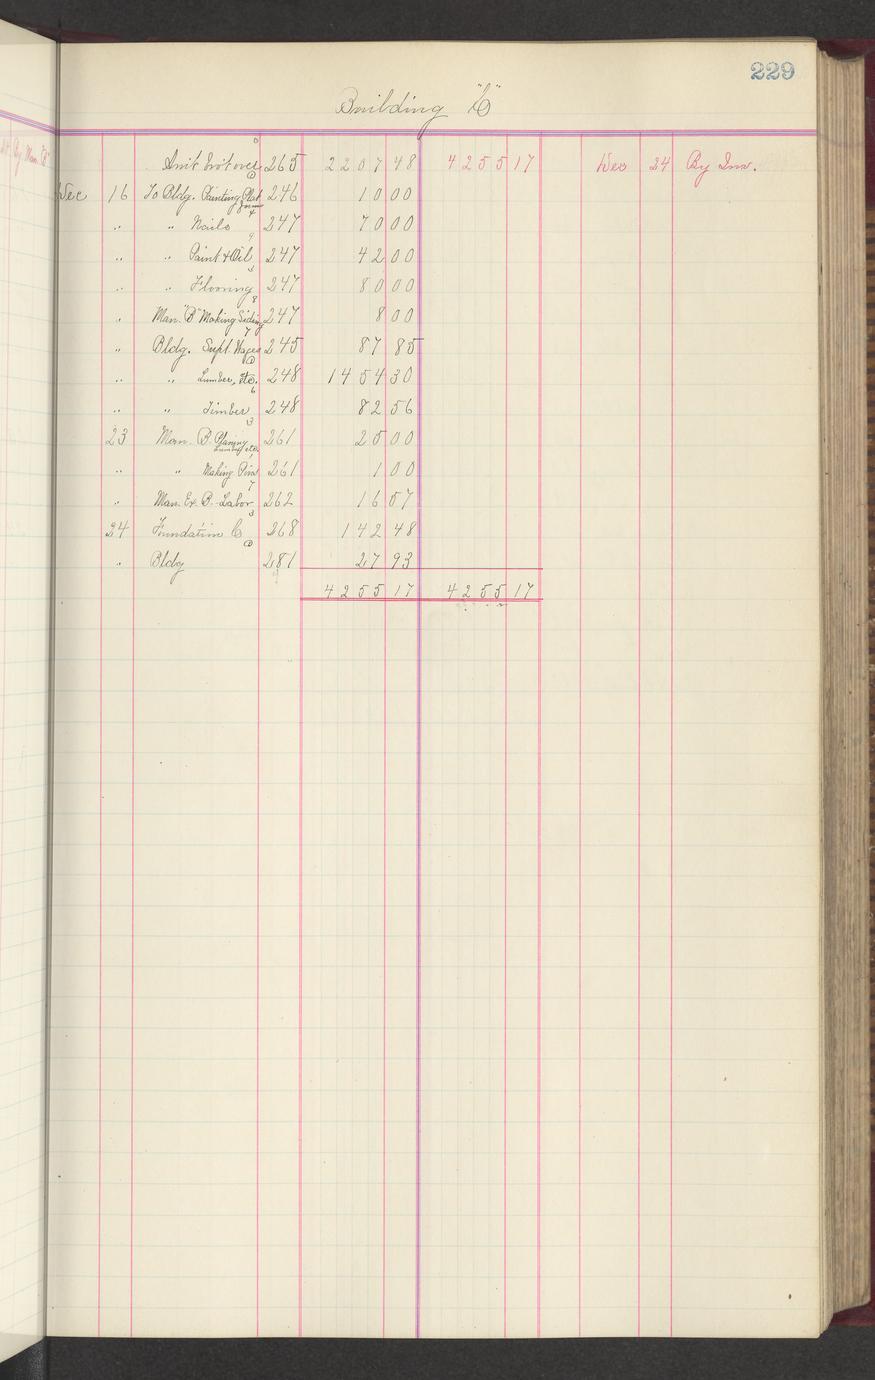 229
Building "C"
Amt brot over 265 2207 48 4255 17 Dec 24 By Inv.
Dec 16 To Bldg. Painting Platform 246 10 00
" " Nails 247 70 00
" " Paint & Oil 247 42 00
" " Flooring 247 80 00
" Man. "B" Making Siding 247 8 00
" Bldg. Supt. Wages 245 87 85
" " Lumber, etc. 248 1454 30
" " Timber 248 82 56
23 Man. B. Planing Lumber etc. 261 25 00
" " Making Pins 261 1 00
" Man. Ex. B. Labor 262 16 57
24 Foundation C 268 142 48
" Bldg 281 27 93
4255 17 4255 17